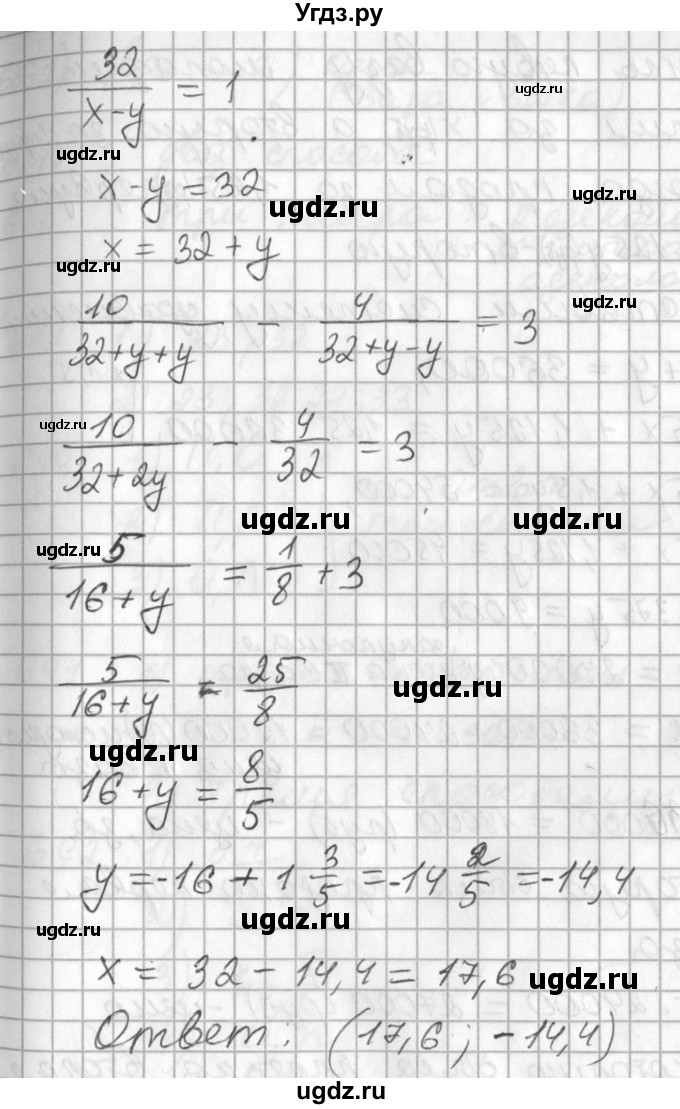 Угдз.ру
32/(x-y) = 1
ugdz.ru
ugdz.ru
x-y = 32
ugdz.ru
ugdz.ru
x = 32 + y
ugdz.ru
10/(32+y+y) - 4/(32+y-y) = 3
ugdz.ru
ugdz.ru
10/(32+2y) - 4/32 = 3
ugdz.ru
ugdz.ru
5/(16+y) = 1/8 + 3
ugdz.ru
5/(16+y) = 25/8
ugdz.ru
ugdz.ru
16+y = 8/5
y = -16 + 1 3/5 = -14 2/5 = -14,4
ugdz.ru
ugdz.ru
x = 32 - 14,4 = 17,6
ugdz.ru
Ответ: (17,6; -14,4)
ugdz.ru